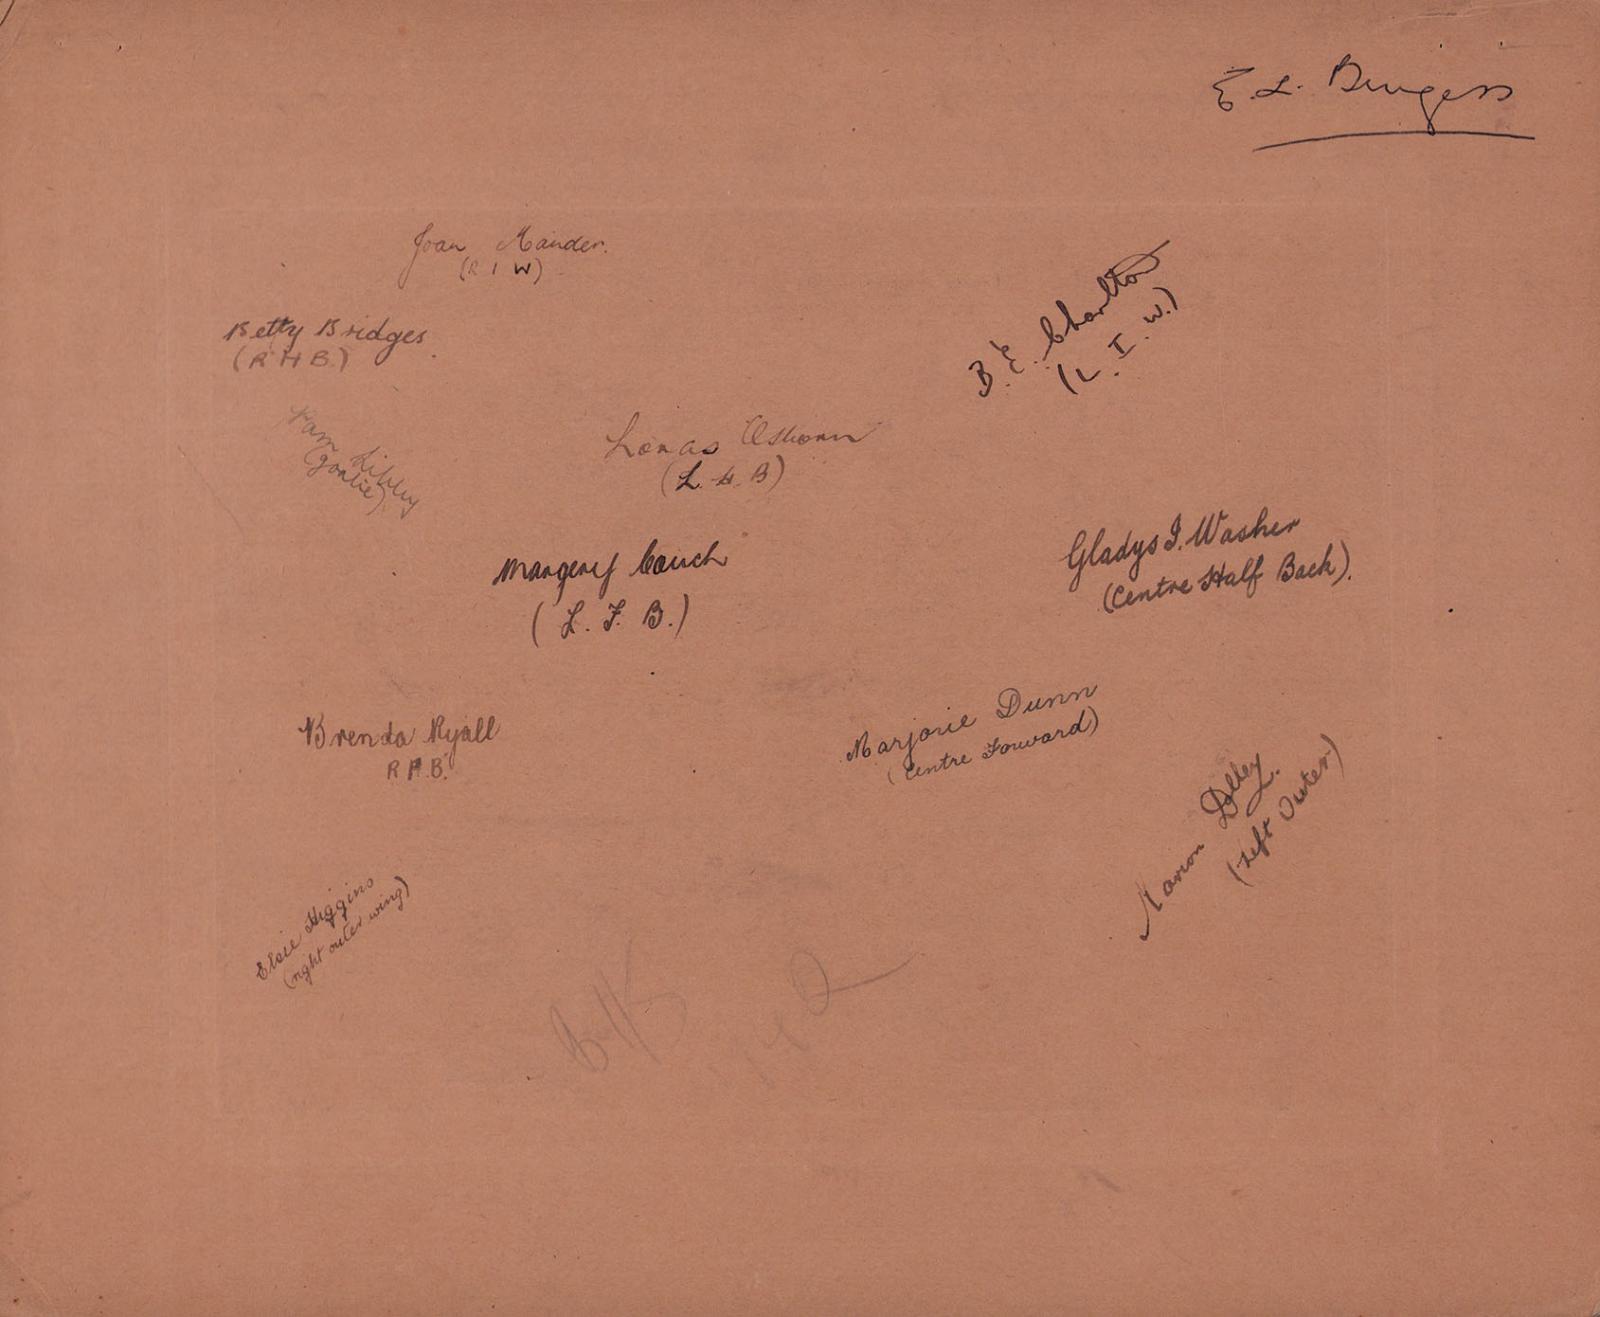 E. L. Burgess
Joan Mander.
(R I W)
B. E. Charlton
(L. I. W.)
Betty Bridges
(R H B.)
Pam Libby
(goalie)
Osborn
(L. H. B)
Gladys I. Washer
(Centre Half Back).
Margery Couch
(L. F. B.)
Brenda Ryall
R F. B.
Marjorie Dunn
(Centre Forward)
Marion Dolley.
(Left Outer)
Elsie Higgins
(right outer wing)